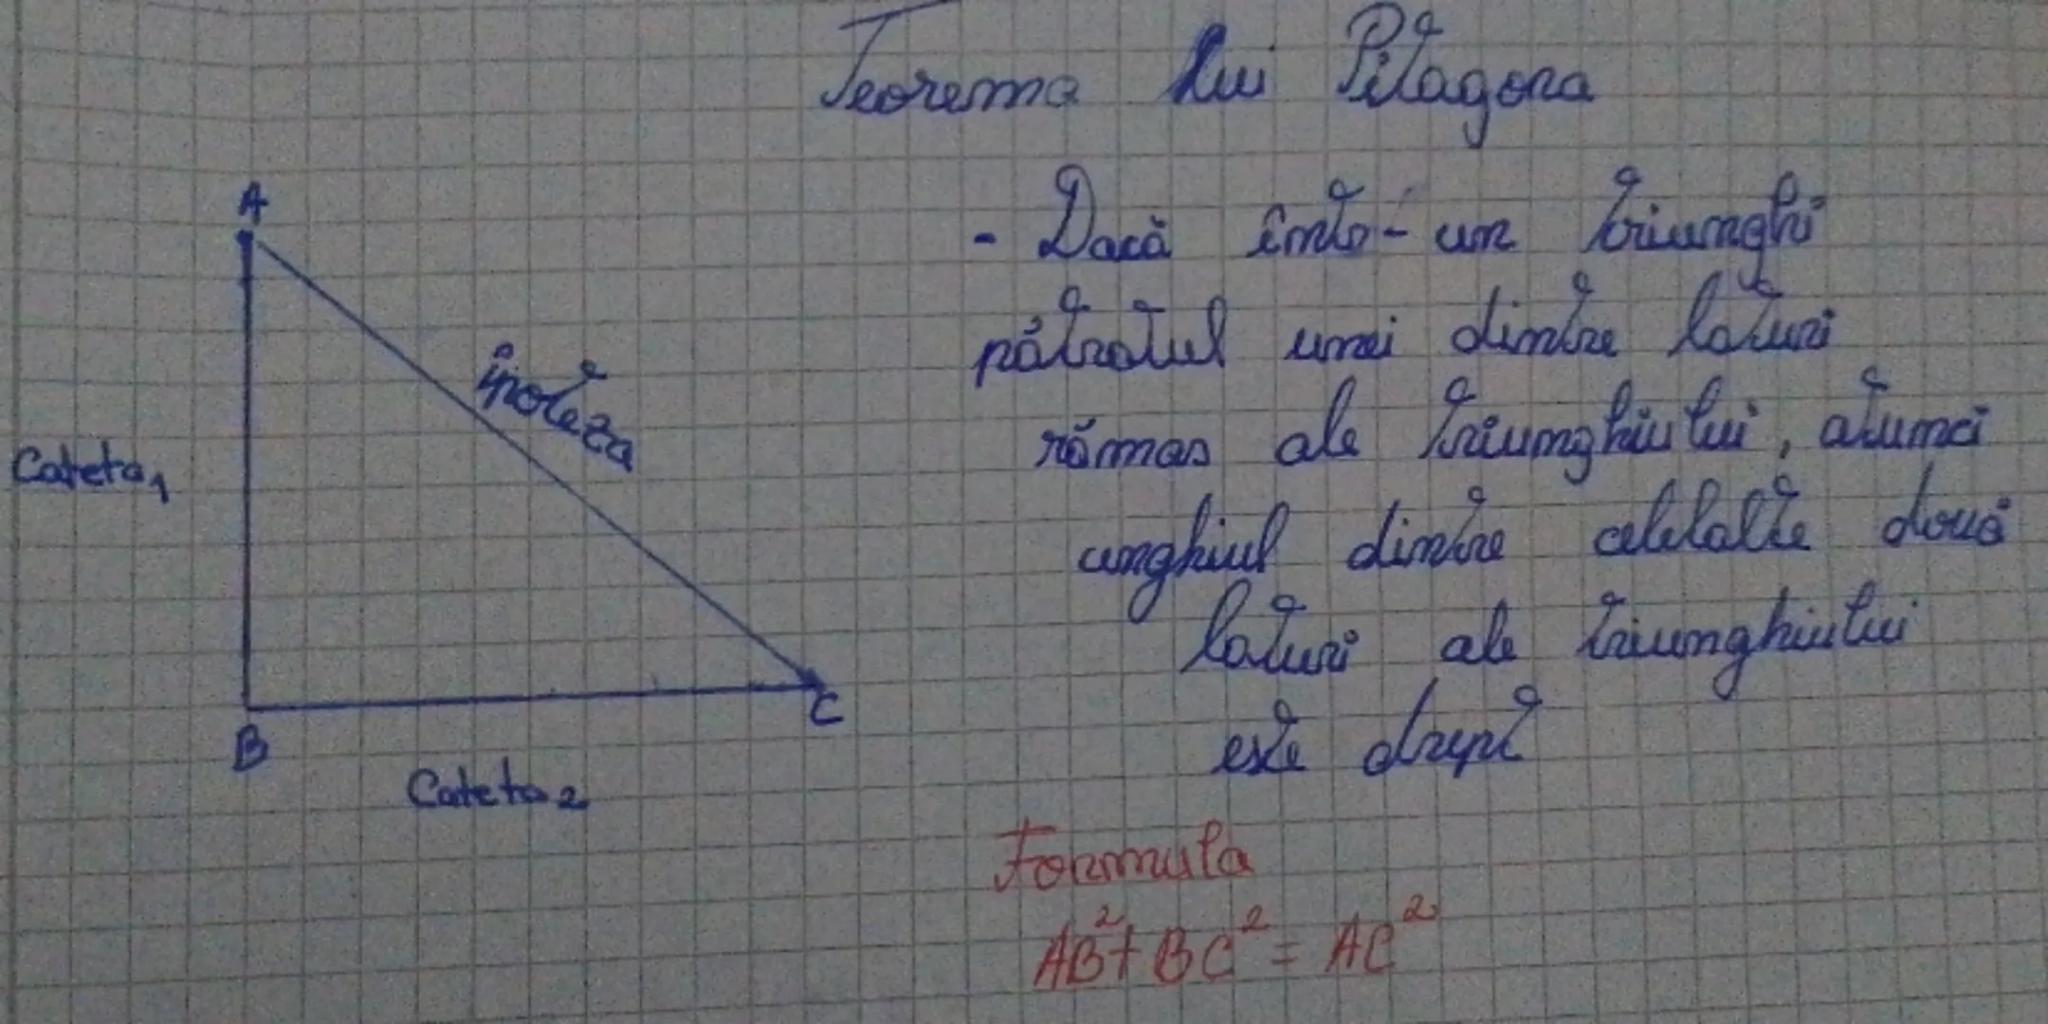 Teorema lui Pitagora
- Dacă într-un triunghi
pătratul unei dintre laturi
rămas ale triunghiului, atunci
unghiul dintre celelalte două
laturi ale triunghiului
este drept
A
ipoteza
Cateta1
B
C
Cateta2
Formula
AB²+BC²=AC²